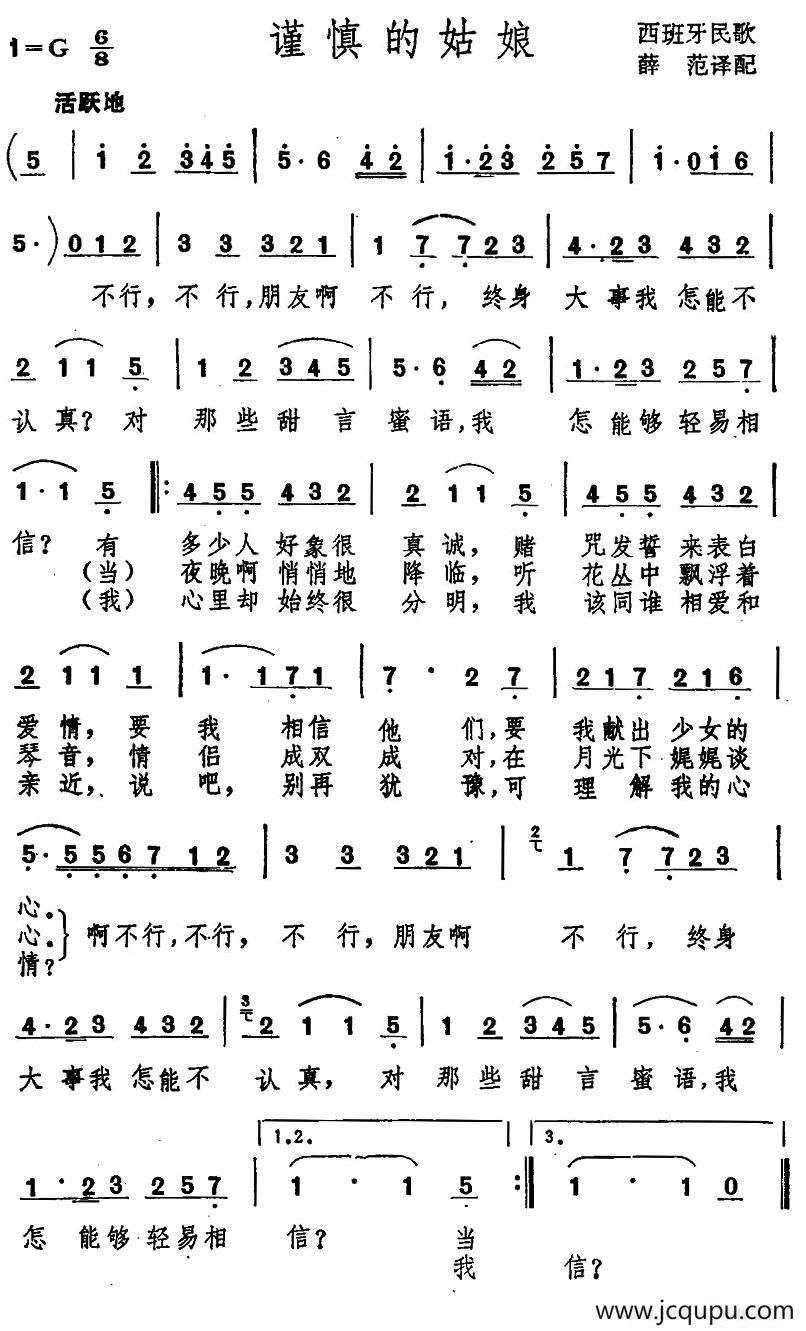 1=G 6/8
谨慎的姑娘
西班牙民歌
薛 范译配
活跃地
(5 | 1 2 345 | 5·6 42 | 1·23 257 | 1·016 |
5·) 012 | 3 3 321 | 1 7 723 | 4·23 432 |
不行, 不行,朋友啊 不行, 终身 大事我 怎能不
2 11 5 | 1 2 345 | 5·6 42 | 1·23 257 |
认真? 对 那些甜言 蜜语,我 怎能够轻易相
1·1 5 ‖: 455 432 | 2 11 5 | 455 432 |
信? 有 多少人 好象很 真诚, 赌 咒发誓 来表白
(当) 夜晚啊 悄悄地 降临, 听 花丛中 飘浮着
(我) 心里却 始终很 分明, 我 该同谁 相爱和
2 11 1 | 1·171 | 7·2 7 | 217 216 |
爱情, 要 我 相信 他 们,要 我献出 少女的
琴音, 情 侣 成双 成 对,在 月光下 娓娓谈
亲近, 说 吧, 别再 犹 豫,可 理解我的心
5·5567 12 | 3 3 321 | 2 1 7 723 |
心。
心。
情?
啊不行,不行, 不 行, 朋友啊 不 行, 终身
4·23 432 | 3 2 11 5 | 1 2 345 | 5·6 42 |
大事我 怎能不 认真, 对 那些甜言 蜜语,我
1.2. 3.
1·23 257 | 1·1 5 :‖ 1·1 0 ‖
怎能够轻易相 信? 当
我 信?
www.jcqupu.com